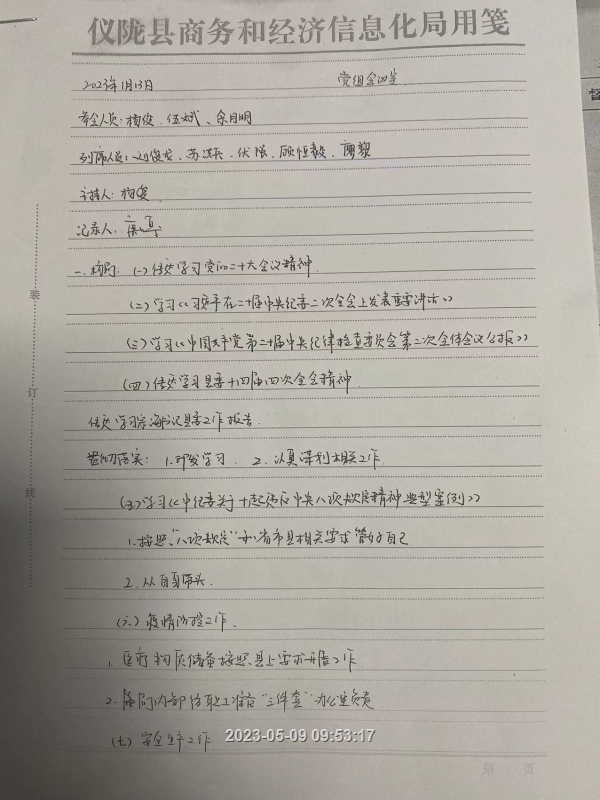 仪陇县商务和经济信息化局用笺
2023年1月13日 党组会议
参会人员：杨俊、伍斌、余月明
列席人员：刘俊龙、苏洪兵、伏强、顾恒毅、廖黎
主持人：杨俊
记录人：
一、杨局：(一)传达学习党的二十大会议精神
(二)学习《习近平在二十届中央纪委二次全会上发表重要讲话》
(三)学习《中国共产党第二十届中央纪律检查委员会第二次全体会议公报》
(四)传达学习县委十四届四次全会精神
传达学习 县委工作报告
贯彻落实：1.印发学习 2.认真谋划相关工作
(五)学习《中纪委关于十起违反中央八项规定精神典型案例》
1.按照"八项规定"和省市县相关要求管好自己
2.从自身带头
(六)疫情防控工作
1.医疗物资储备按照县上要求开展工作
2.局内部给职工准备"三件套"办公室负责
(七)安全生产工作
2023-05-09 09:53:17
第 页
装
订
线
督